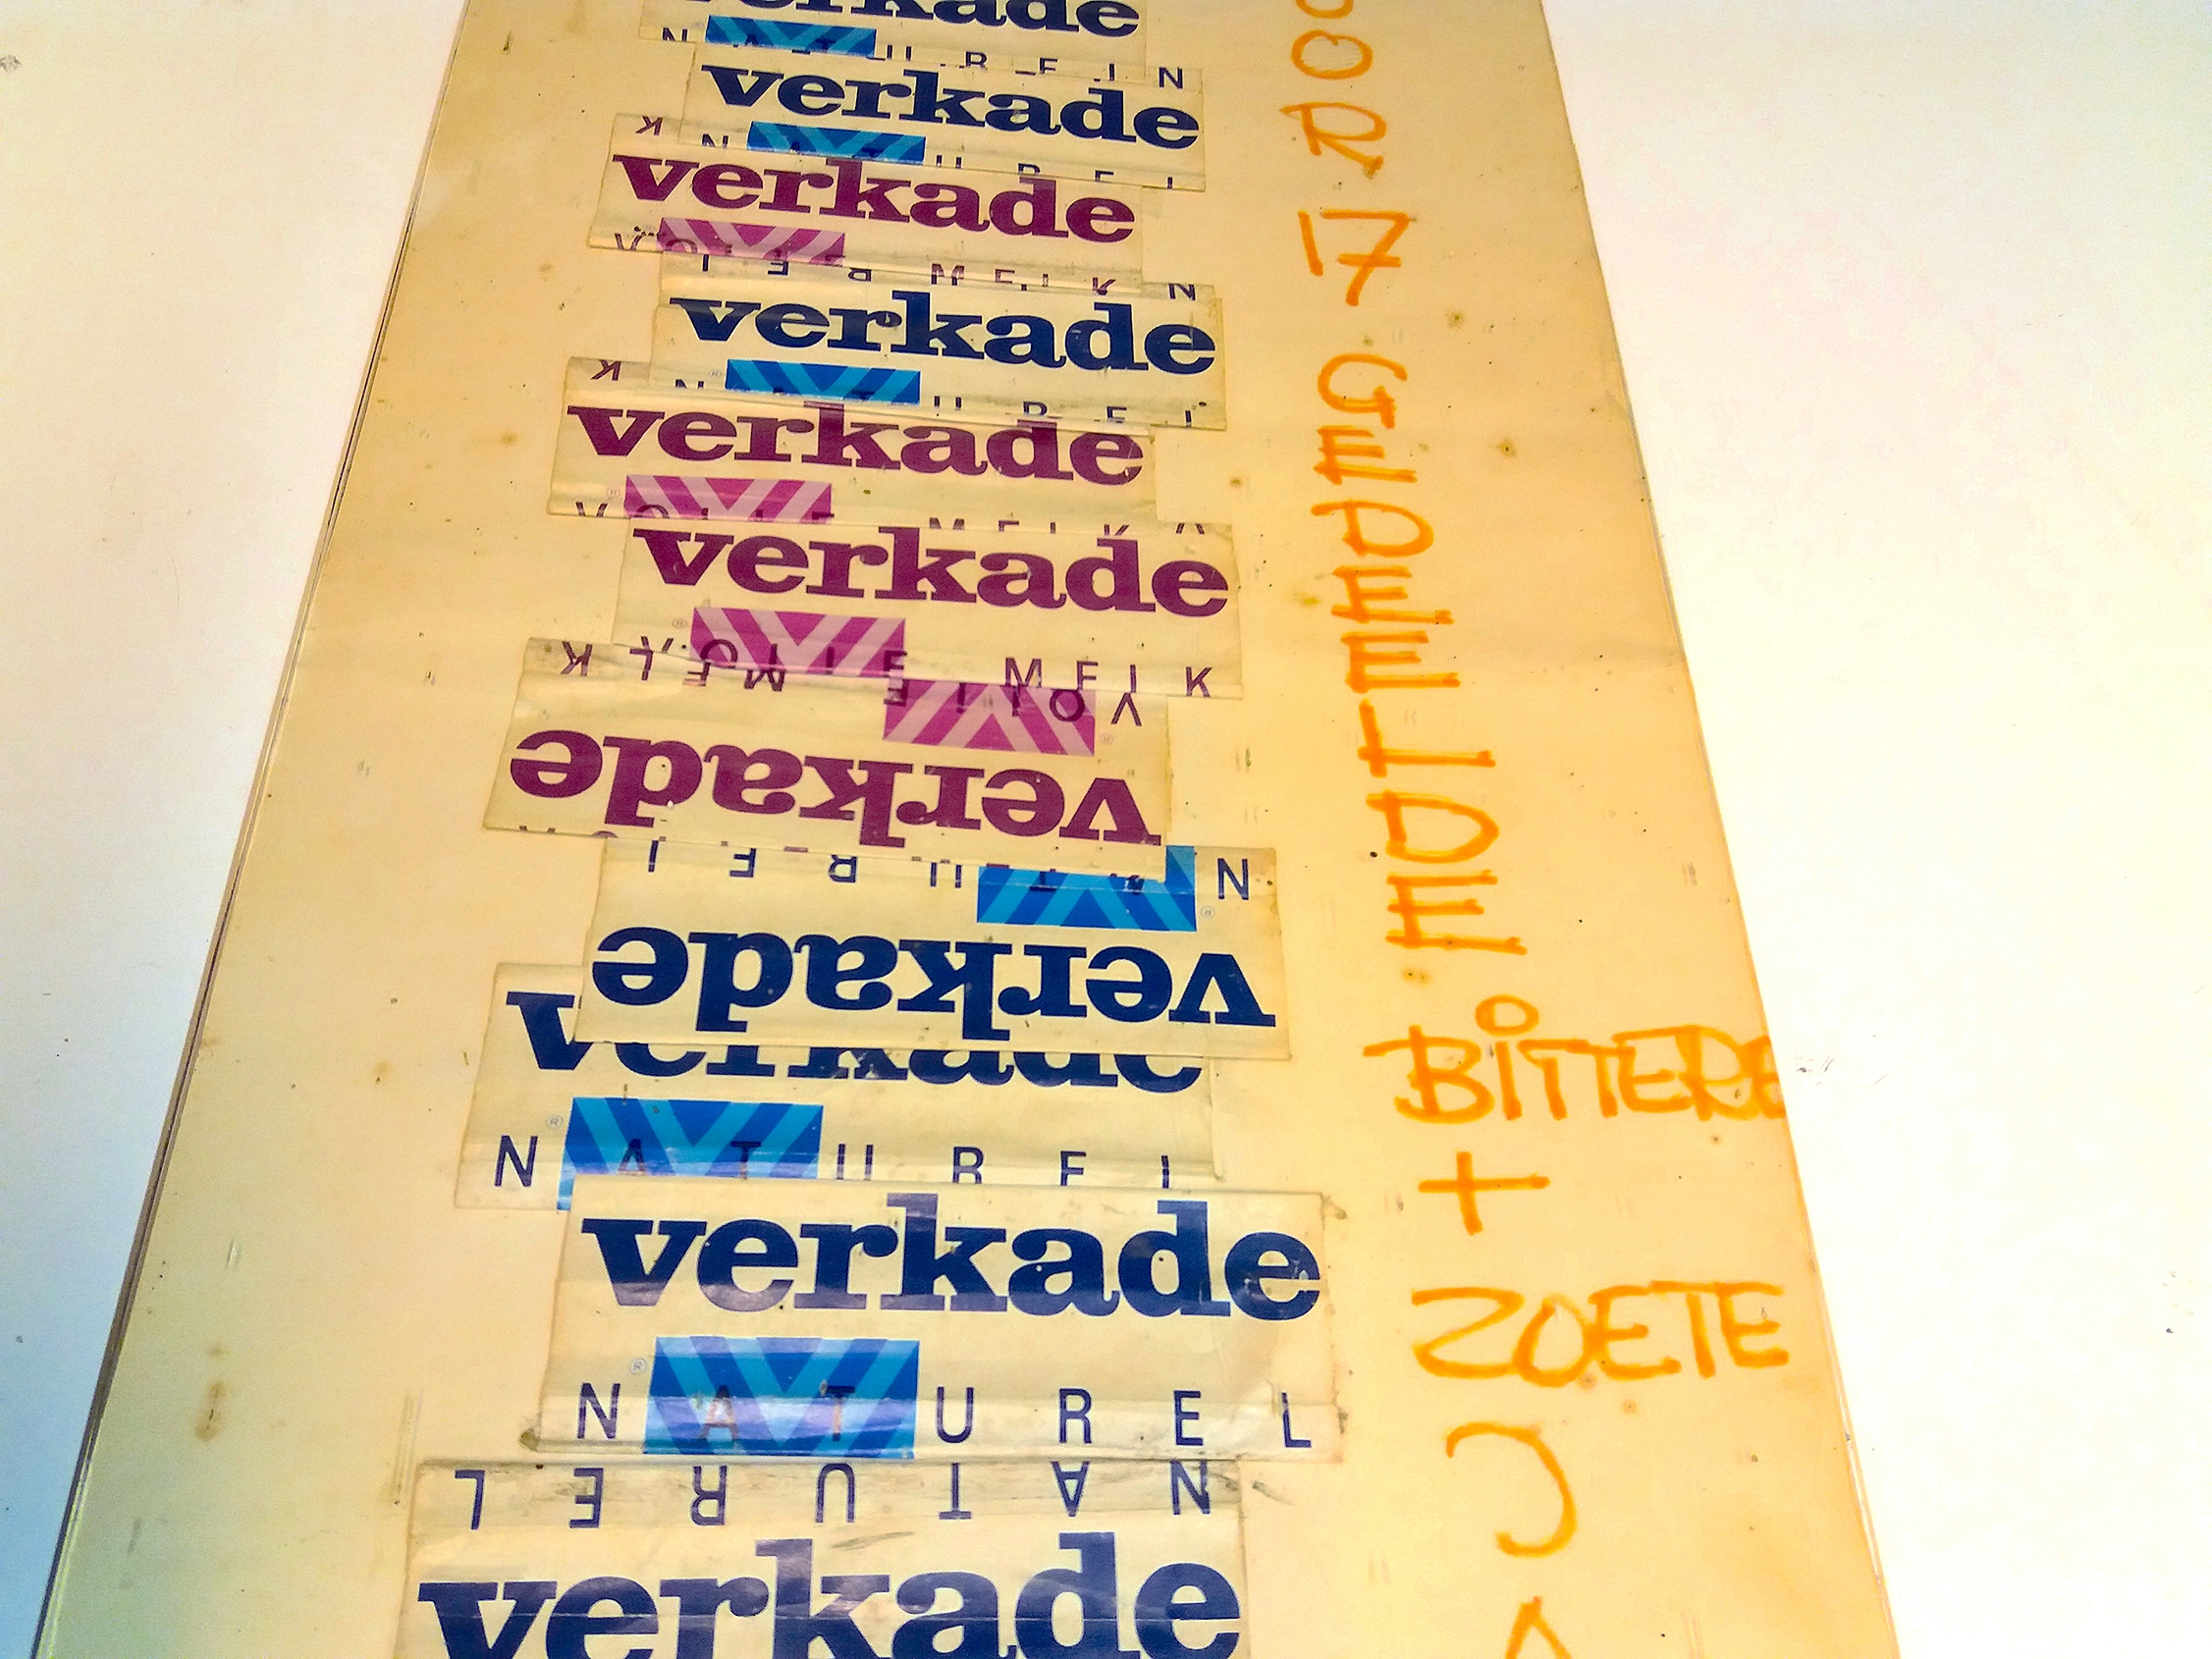 verkade
NATUREL
verkade
NATUREL
verkade
VOLLE MELK
verkade
NATUREL
verkade
VOLLE MELK
verkade
VOLLE MELK
VOLLE MELK
verkade
NATUREL
verkade
verkade
NATUREL
verkade
NATUREL
NATUREL
verkade
OOR
17
GEDEELDE
BITTERE
+
ZOETE
JA